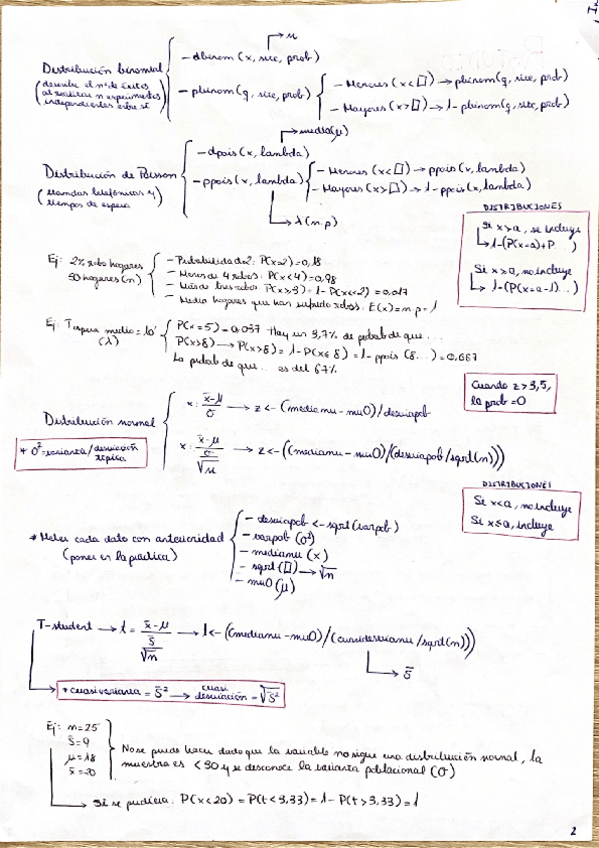 n
Distribución binomial
(describe el nº de éxitos
al realizar n experimentos
independientes entre sí)
- dbinom (x, size, prob)
- pbinom (q, size, prob)
- Menores (x<□) → pbinom (q, size, prob)
- Mayores (x>□) → 1-pbinom (q, size, prob)
media (μ)
Distribución de Poisson
(llamadas telefónicas y
tiempos de espera)
- dpois (x, lambda)
- ppois (x, lambda)
- Menores (x<□) → ppois (x, lambda)
- Mayores (x>□) → 1-ppois (x, lambda)
λ (n.p)
DISTRIBUCIONES
Si x>a, se incluye
1-(P(x=a)+P...)
Si x>a, no incluye
1-(P(x=a-1)...)
Ej: 2% robo hogares
50 hogares (n)
- Probabilidad de 2: P(x=2)=0,18
- Menos de 4 robos: P(x<4)=0,98
- Más de tres robos: P(x>3)=1-P(x<=2)=0,017
- Media hogares que han sufrido robos: E(x)=n.p=1
Ej: T espera medio = 10'
(λ)
P(x=5)=0,037 Hay un 3,7% de probab de que...
P(x>8) → P(x>8)=1-P(x≤8)=1-ppois(8...)=0,667
La probab de que... es del 67%
Cuando z>3,5,
la prob=0
Distribución normal
x: x̄-μ / σ → z <- (mediamu-mu0)/desviapob
x: x̄-μ / σ/√n → z <- ((mediamu-mu0)/(desviapob/sqrt(n)))
* σ²=varianza/desviación
típica
DISTRIBUCIONES
Si x<a, no incluye
Si x≤a, incluye
* Meter cada dato con anterioridad
(poner en la práctica)
- desviapob <- sqrt(varpob)
- varpob (σ²)
- mediamu (x)
- sqrt (□) → √n
- mu0 (μ)
T-student → t = x̄-μ / S̄/√n → t <- ((mediamu-mu0)/(cuasidesviamu/sqrt(n)))
S̄
* cuasivarianza = S̄² → cuasi desviación = √S̄²
Ej: n=25
S̄=9
μ=18
x̄=20
No se puede hacer dado que la variable no sigue una distribución normal, la
muestra es <30 y se desconoce la varianza poblacional (σ)
Si se pudiera: P(x<20)=P(t<3,33)=1-P(t>3,33)=1
2